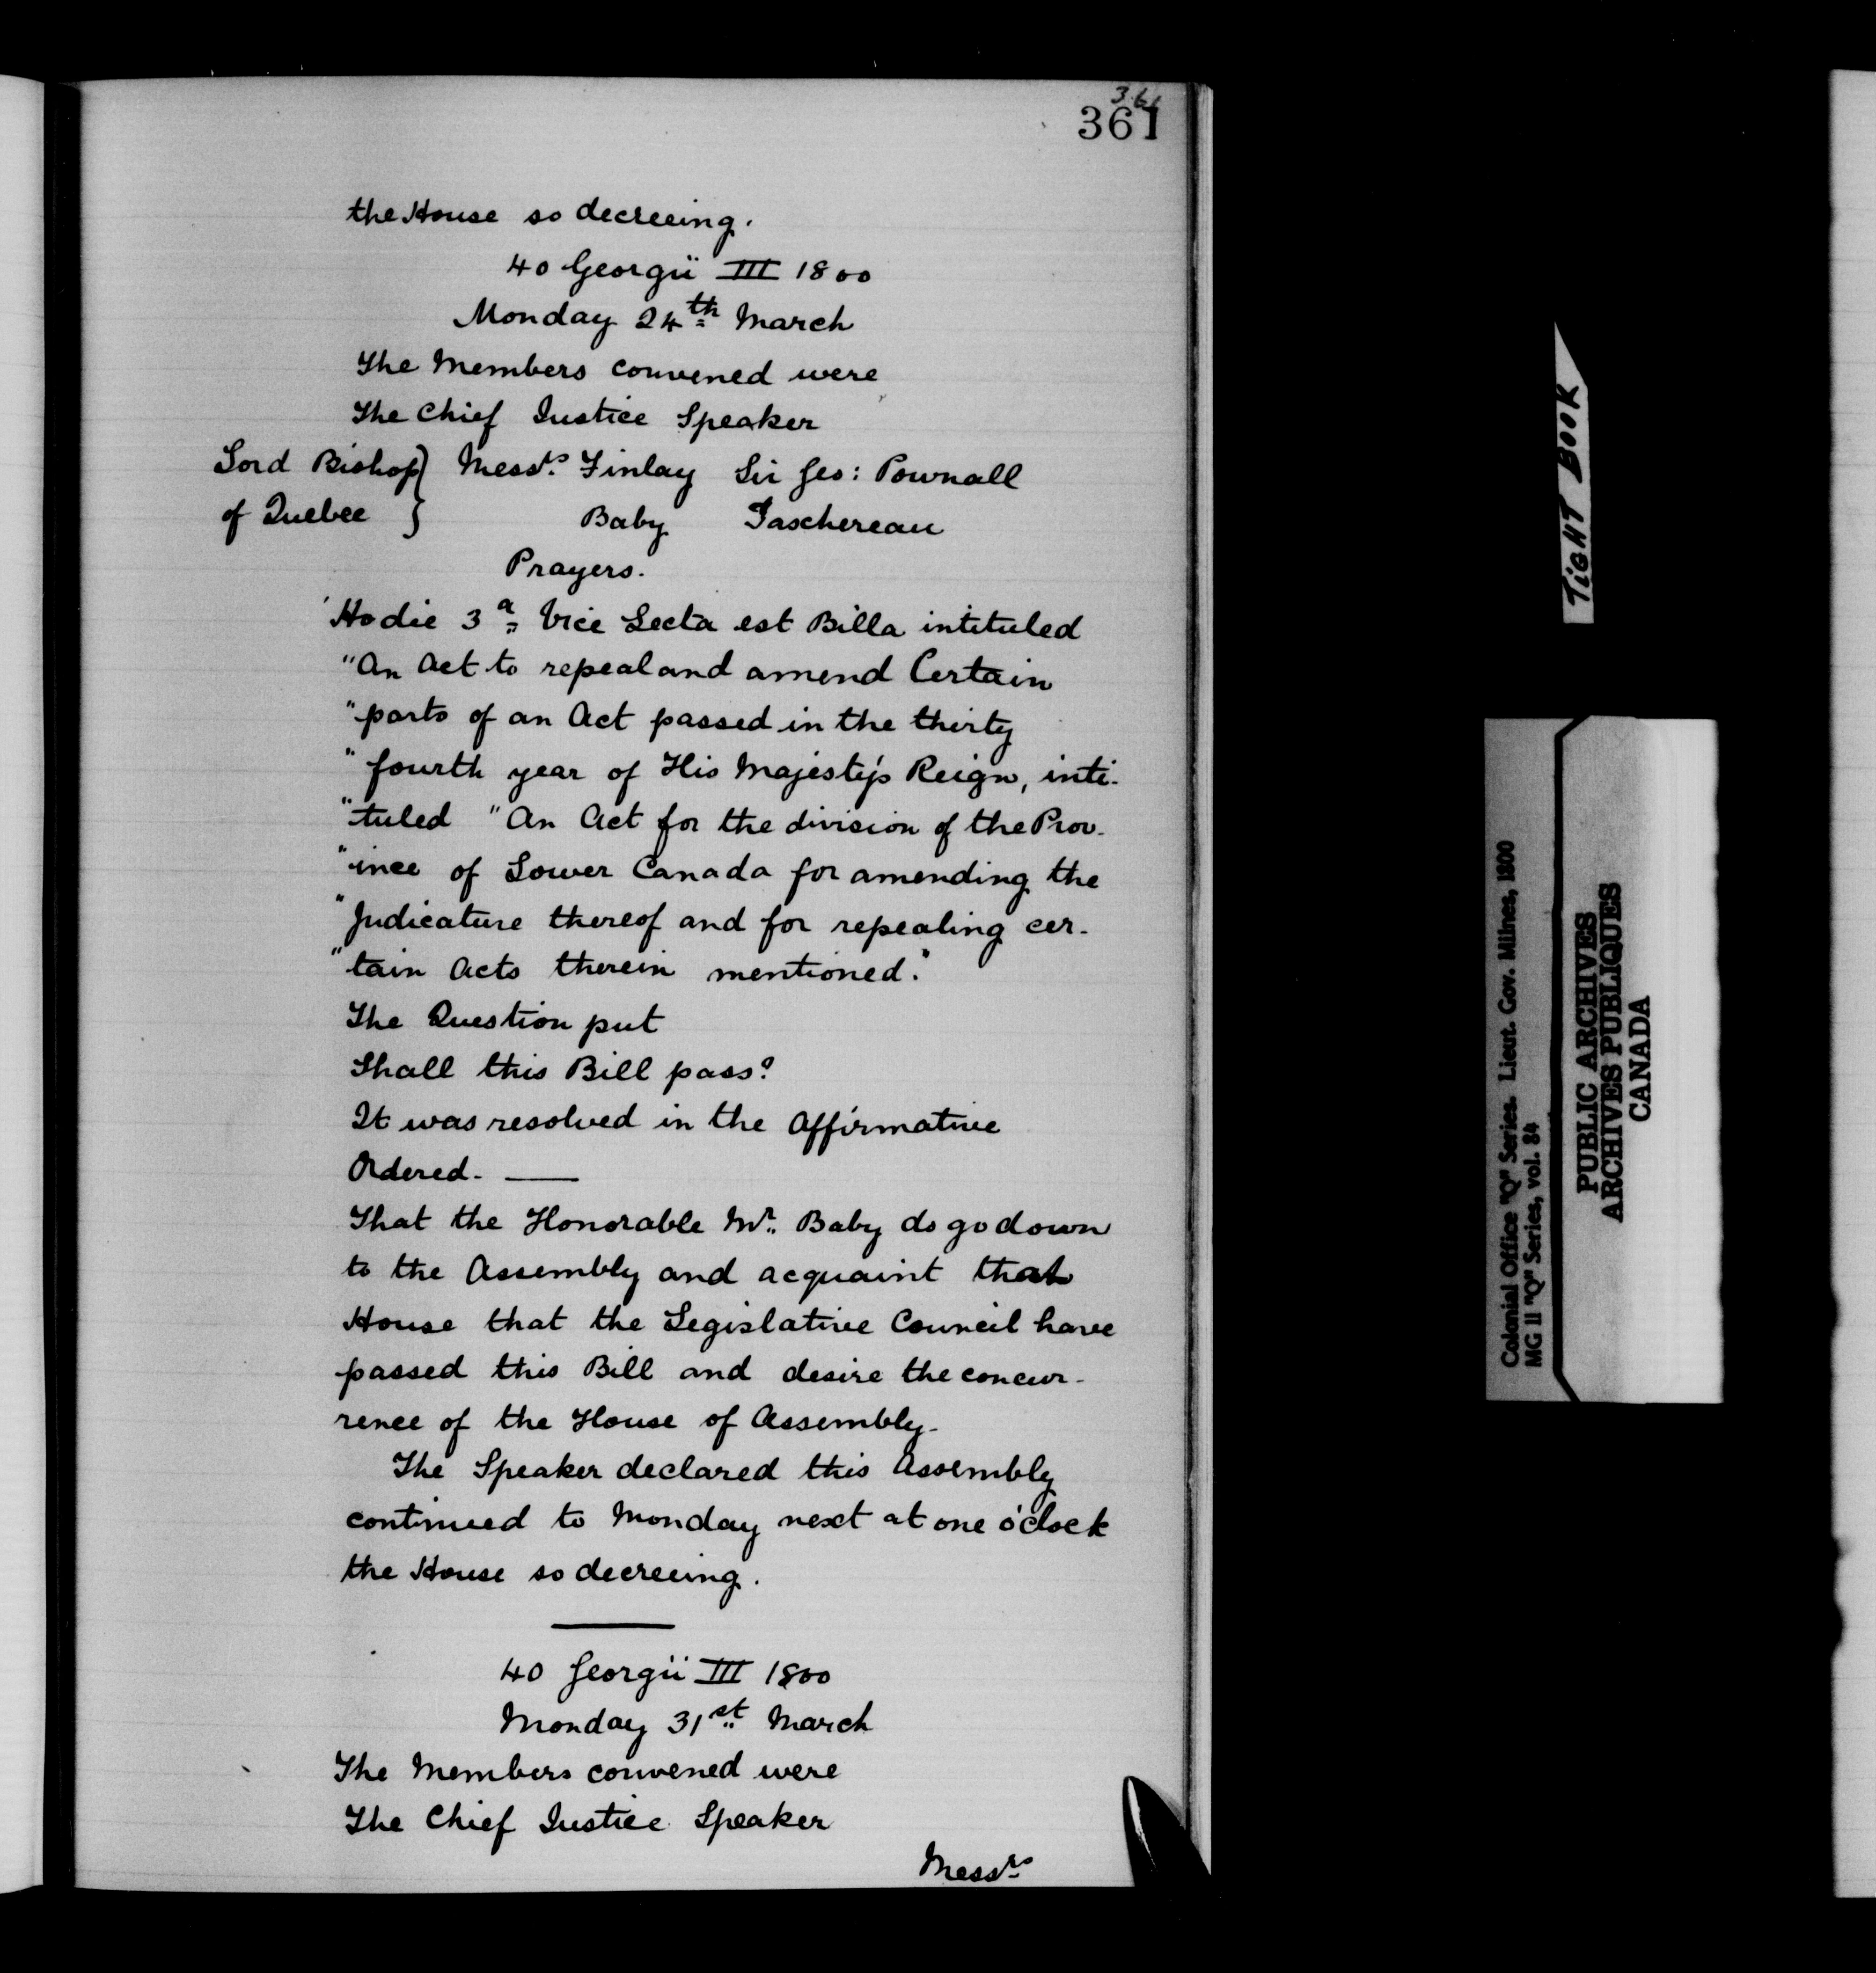 361
361
the House so decreeing.
40 Georgii III 1800
Monday 24th March
The Members convened were
The Chief Justice Speaker
Lord Bishop } Messrs. Finlay Sir Geo: Pownall
of Quebec } Baby Taschereau
Prayers.
Hodie 3a Vice Lecta est Billa intituled
"An Act to repeal and amend Certain
"parts of an Act passed in the thirty
"fourth year of His Majesty's Reign, inti-
"tuled "An Act for the division of the Prov-
"ince of Lower Canada for amending the
"Judicature thereof and for repealing cer-
"tain Acts therein mentioned."
The Question put
Shall this Bill pass?
It was resolved in the Affirmative
Ordered. —
That the Honorable Mr. Baby do go down
to the Assembly and acquaint that
House that the Legislative Council have
passed this Bill and desire the concur-
rence of the House of Assembly.
The Speaker declared this Assembly
continued to Monday next at one o'clock
the House so decreeing.
40 Georgii III 1800
Monday 31st March
The Members convened were
The Chief Justice Speaker
Messrs
TIGHT BOOK
Colonial Office "Q" Series. Lieut. Gov. Milnes, 1800
MG 11 "Q" Series, vol. 84
PUBLIC ARCHIVES
ARCHIVES PUBLIQUES
CANADA